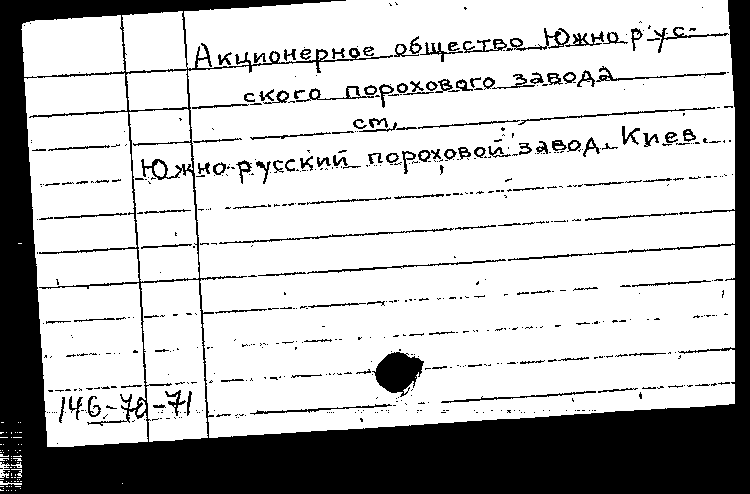 Акционерное общество Южнорус-
ского порохового завода
ст.
Южно-русский пороховой завод. Киев.
146-70-71